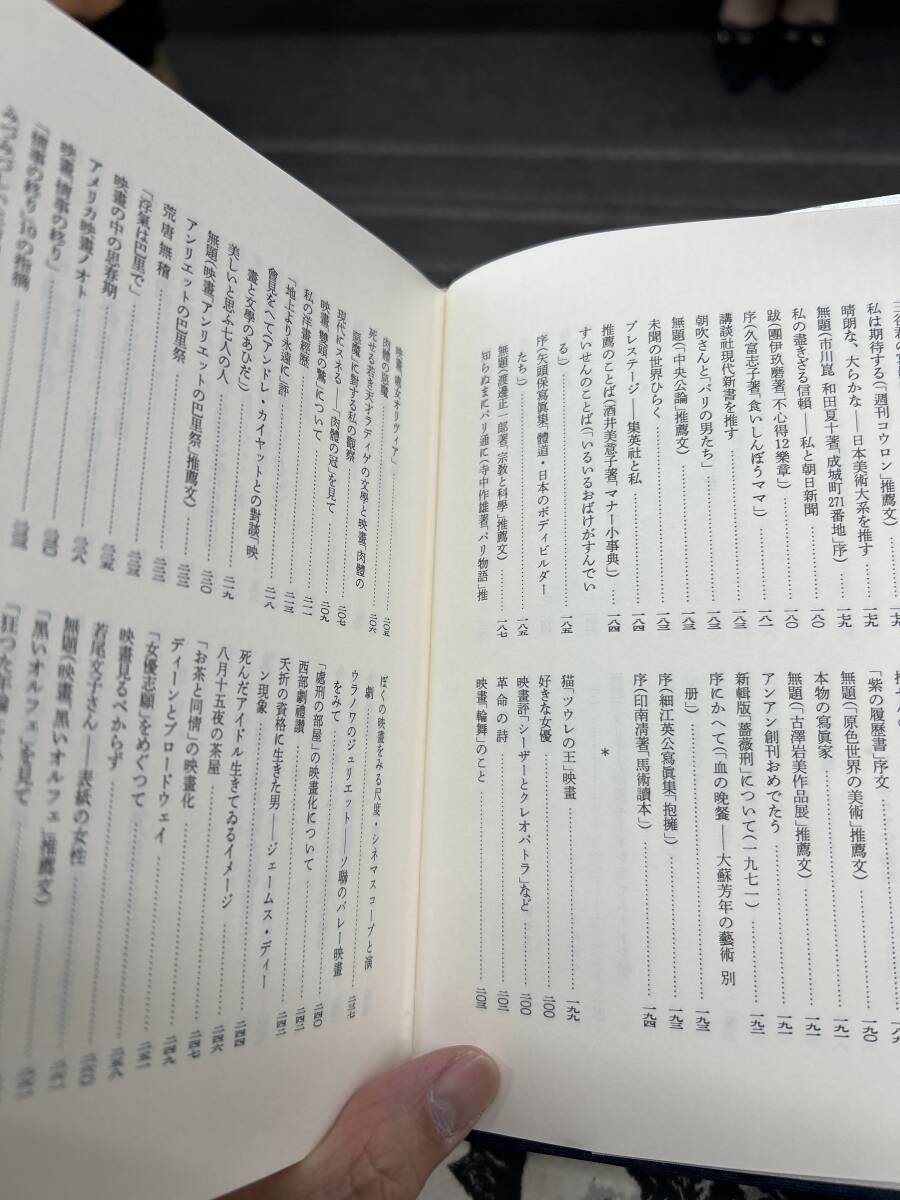 私は期待する(「週刊コウロン」推薦文)……一七九
晴朗な、大らかな——日本美術大系を推す……一七九
無題(市川崑 和田夏十著「成城町271番地」序)……一七九
私の盡きざる信頼——私と朝日新聞……一八〇
跋(團伊玖磨著「不心得12樂章」)……一八〇
序(久富志子著「食いしんぼうママ」)……一八一
講談社現代新書を推す……一八二
朝吹さんと「パリの男たち」……一八三
無題(「中央公論」推薦文)……一八三
未聞の世界ひらく……一八三
プレステージ——集英社と私……一八四
推薦のことば(酒井美意子著「マナー小事典」)……一八四
すいせんのことば(「いるいるおばけがすんでい
る」)……一八五
序(矢頭保寫眞集「體道・日本のボディビルダー
たち」)……一八五
無題(渡邊正一郎著「宗教と科學」推薦文)……一八七
知らぬまにパリ通に(寺中作雄著「パリ物語」推
「紫の履歴書」序文……一九〇
無題(「原色世界の美術」推薦文)……一九一
本物の寫眞家……一九一
無題(「古澤岩美作品展」推薦文)……一九一
アンアン創刊おめでたう……一九二
新輯版「薔薇刑」について(一九七一)……一九二
序にかへて(「血の晩餐——大蘇芳年の藝術 別
册」)……一九三
序(細江英公寫眞集「抱擁」)……一九三
序(印南淸著「馬術讀本」)……一九四
*
猫「ツウレの王」映畫……一九九
好きな女優……二〇〇
映畫評「シーザーとクレオパトラ」など……二〇〇
革命の詩……二〇二
映畫「輪舞」のこと……二〇三
映畫「處女オリヴィア」……二〇五
肉體の惡魔……二〇六
死せる若き天才ラディゲの文學と映畫「肉體の
惡魔」に對する私の觀察……二〇七
現代にスネる——「肉體の冠」を見て……二〇九
映畫「雙頭の鷲」について……二一一
私の洋畫經歷……二一三
「地上より永遠に」評……二一八
會見をへて(アンドレ・カイヤットとの對談「映
畫と文學のあひだ」)……二一九
美しいと思ふ七人の人……二二〇
無題(映畫「アンリエットの巴里祭」推薦文)……二二二
アンリエットの巴里祭
荒唐無稽
「浮氣は巴里で」
映畫の中の思春期
アメリカ映畫ノオト
映畫「情事の終り」
「情事の終り」10の指摘
ぼくの映畫をみる尺度・シネマスコープと演
劇……二三七
ウラノワのジュリエット——ソ聯のバレー映畫
をみて……二四〇
「處刑の部屋」の映畫化について……二四二
西部劇禮讚……二四二
夭折の資格に生きた男——ジェームス・ディー
ン現象……二四四
死んだアイドル生きてゐるイメージ……二四六
八月十五夜の茶屋……二四七
「お茶と同情」の映畫化……二四九
ディーンとブロードウェイ……二五一
「女優志願」をめぐつて
映畫見るべからず
若尾文子さん——表紙の女性
無題(映畫「黒いオルフェ」推薦文)
「黒いオルフェ」を見て